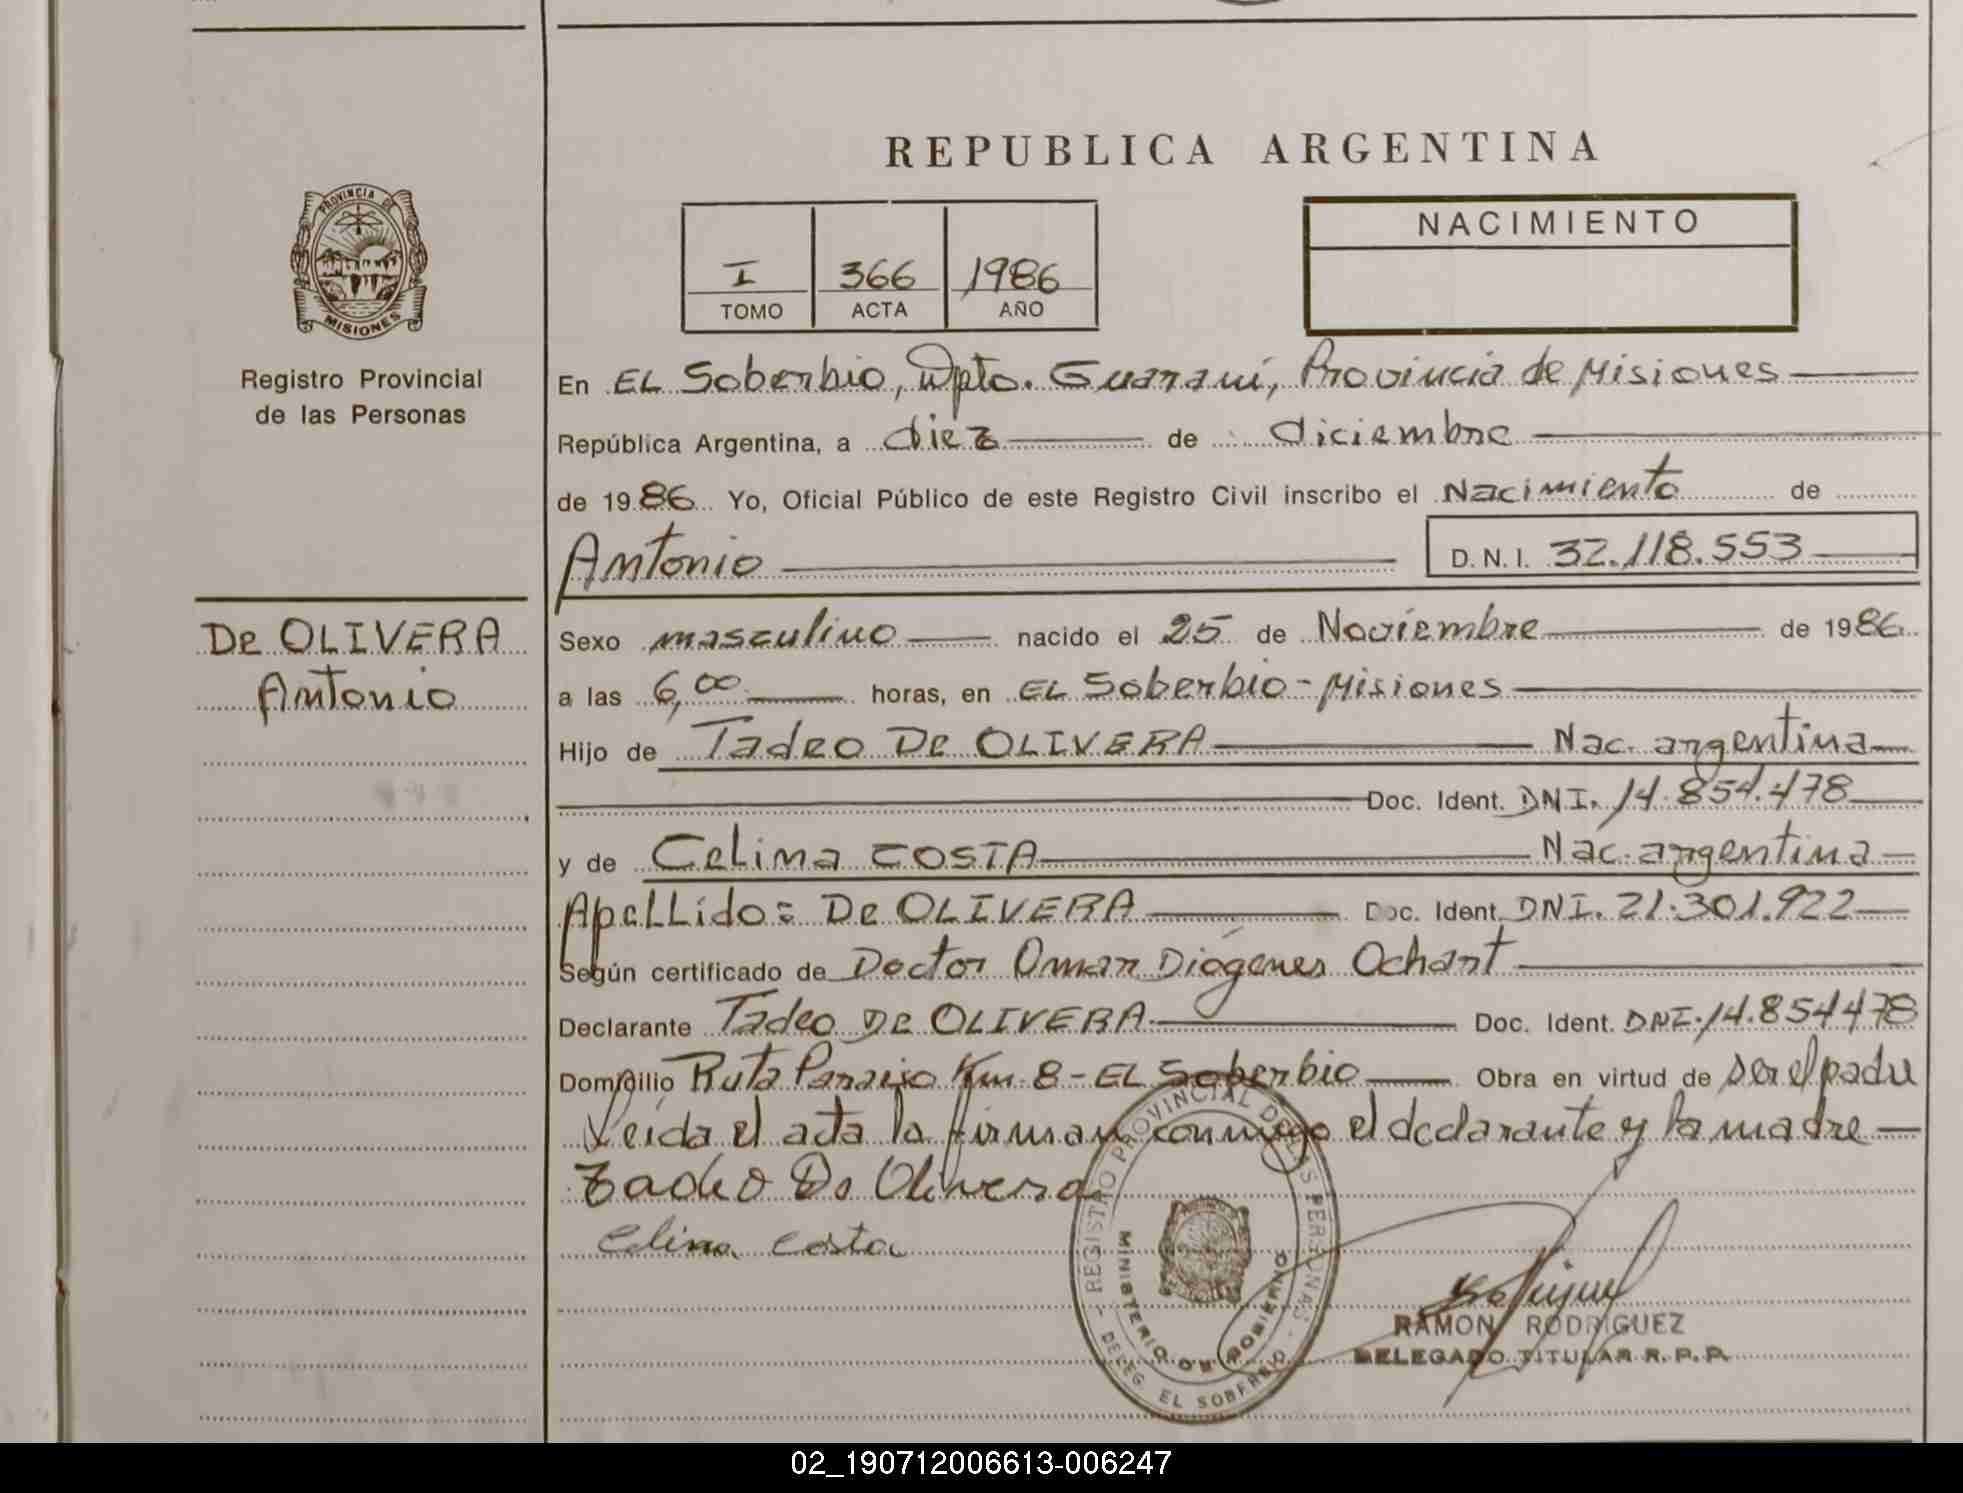 REPUBLICA ARGENTINA
PROVINCIA DE
MISIONES
Registro Provincial
de las Personas
NACIMIENTO
I 366 1986
TOMO ACTA AÑO
En EL Soberbio, Dpto. Guaraní, Provincia de Misiones
República Argentina, a diez de diciembre
de 1986 Yo, Oficial Público de este Registro Civil inscribo el Nacimiento de
Antonio D.N.I. 32.118.553
De OLIVERA
Antonio
Sexo masculino nacido el 25 de Noviembre de 1986
a las 6,00 horas, en EL Soberbio - Misiones
Hijo de Tadeo De OLIVERA Nac. argentina
Doc. Ident. DNI. 14.854.478
y de Celima COSTA Nac. argentina
Apellido: De OLIVERA Doc. Ident. DNI. 21.301.922
Según certificado de Doctor Omar Diógenes Ochart
Declarante Tadeo De OLIVERA Doc. Ident. DNI. 14.854478
Domicilio Ruta Paraiso Km 8 - EL Soberbio Obra en virtud de ser el padre
Leída el acta la firman conmigo el declarante y la madre
Tadeo De Olivera
Celima Costa
REGISTRO PROVINCIAL DE LAS PERSONAS
MINISTERIO DE GOBIERNO
DELEG. EL SOBERBIO
RAMON RODRIGUEZ
DELEGADO TITULAR R.P.P.
02_190712006613-006247